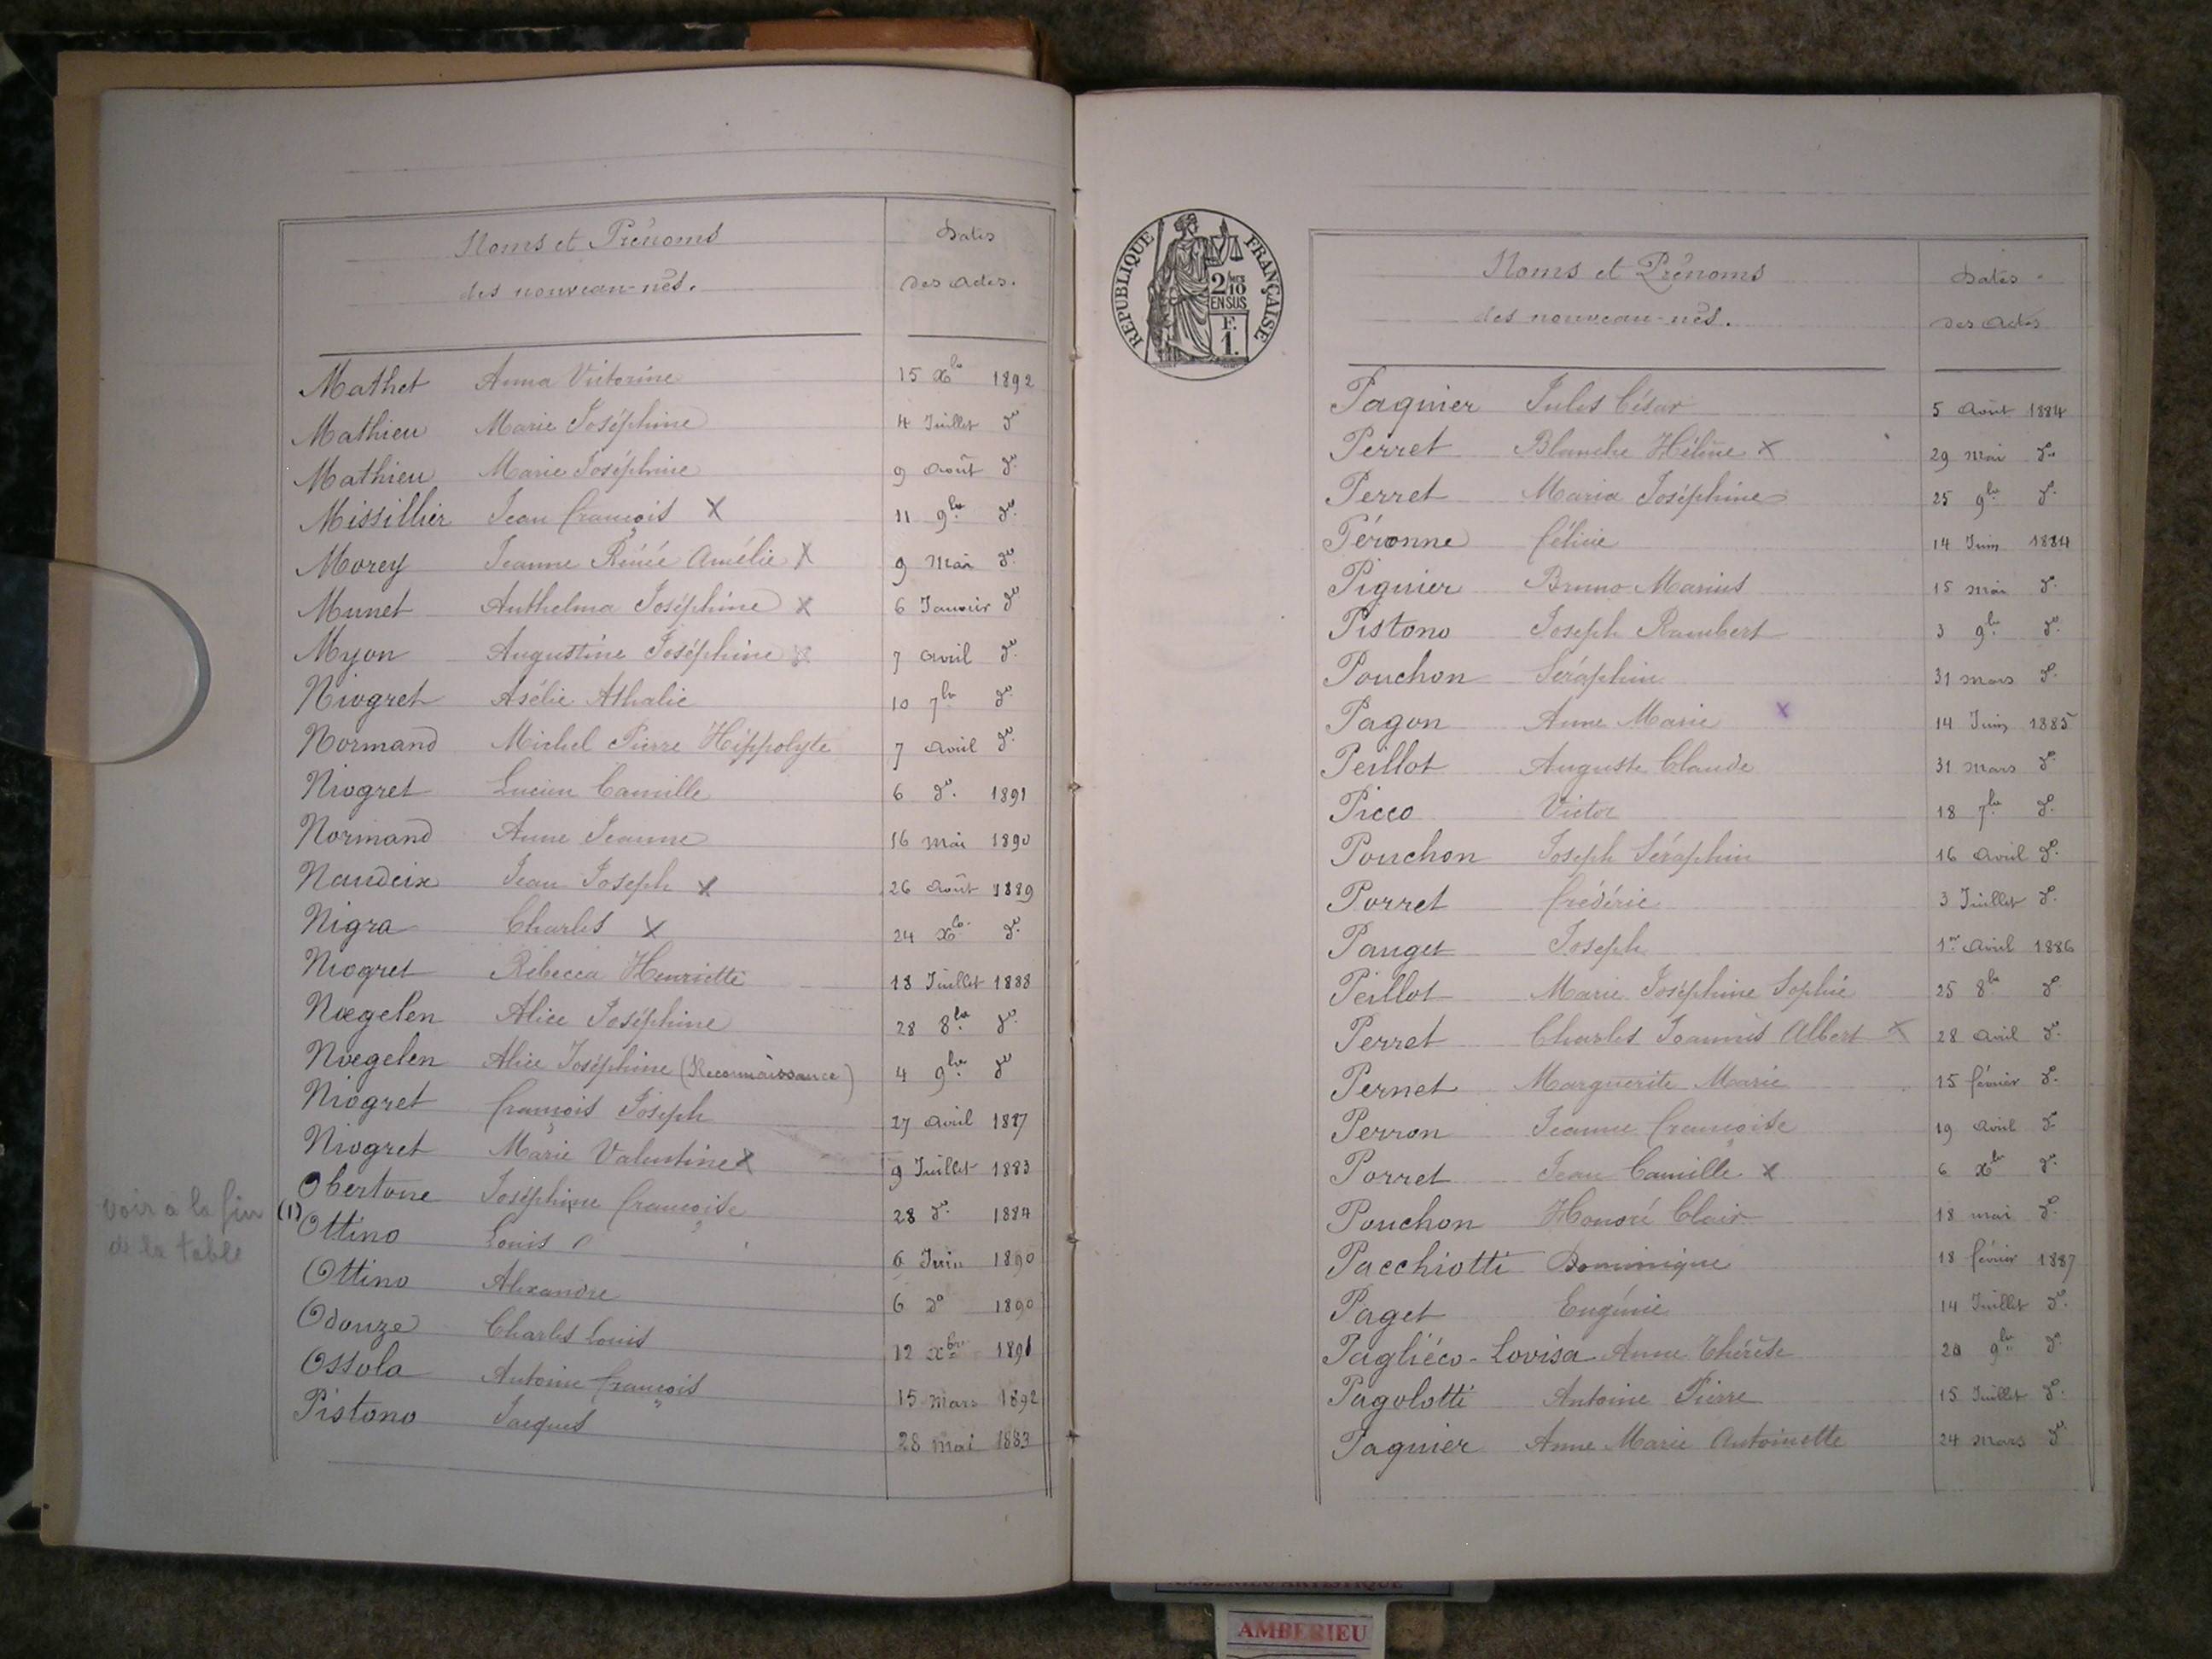 Noms et Prénoms
des nouveau-nés.
Dates
des actes.
Mathet Anna Victorine 15 Xbre 1892
Mathieu Marie Joséphine 4 Juillet do
Mathieu Marie Joséphine 9 Août do
Missillier Jean François X 11 9bre do
Morey Jeanne Rénée Amélie X 9 Mai do
Munet Anthelma Joséphine X 6 Janvier do
Myon Augustine Joséphine X 7 avril do
Niogret Asélie Athalie 10 7bre do
Normand Michel Pierre Hippolyte 7 avril do
Niogret Lucien Camille 6 do 1891
Normand Anne Jeanne 16 mai 1890
Naudeix Jean Joseph X 26 Août 1889
Nigra Charles X 24 Xbre do
Niogret Rébecca Henriette 18 Juillet 1888
Nœgelen Alice Joséphine 28 8bre do
Nœgelen Alice Joséphine (Reconnaissance) 4 9bre do
Niogret François Joseph 27 avril 1887
Niogret Marie Valentine X 9 Juillet 1883
Obertone Joséphine Françoise 28 do 1884
voir à la fin
de la table
(1) Ottino Louis 6 Juin 1890
Ottino Alexandre 6 do 1890
Odouze Charles Louis 12 Xbre 1891
Ossola Antoine François 15 Mars 1892
Pistono Jacques 28 mai 1883
RÉPUBLIQUE FRANÇAISE
2/10
EN SUS
F.
1.
Noms et Prénoms
des nouveau-nés.
Dates
des actes
Paguier Jules César 5 Août 1884
Perret Blanche Hélène X 29 mai do
Perret Maria Joséphine 25 9bre do
Péronne Félicie 14 Juin 1884
Piguier Bruno Marius 15 mai do
Pistono Joseph Rambert 3 9bre do
Pouchon Séraphin 31 mars do
Pagon Anne Marie X 14 Juin 1885
Peillot Auguste Claude 31 mars do
Picco Victor 18 7bre do
Pouchon Joseph Séraphin 16 avril do
Porret Frédéric 3 Juillet do
Pauget Joseph 1er avril 1886
Peillot Marie Joséphine Sophie 25 8bre do
Perret Charles Joannès Albert X 28 avril do
Pernet Marguerite Marie 15 février do
Perron Jeanne Françoise 19 avril do
Porret Jean Camille X 6 Xbre do
Pouchon Honoré Clair 18 mai do
Pacchiotti Dominique 18 février 1887
Paget Eugénie 14 Juillet do
Pagliéco-Lovisa Anne Thérèse 20 9bre do
Pagolotti Antoine Pierre 15 Juillet do
Paguier Anne Marie Antoinette 24 mars do
AMBERIEU